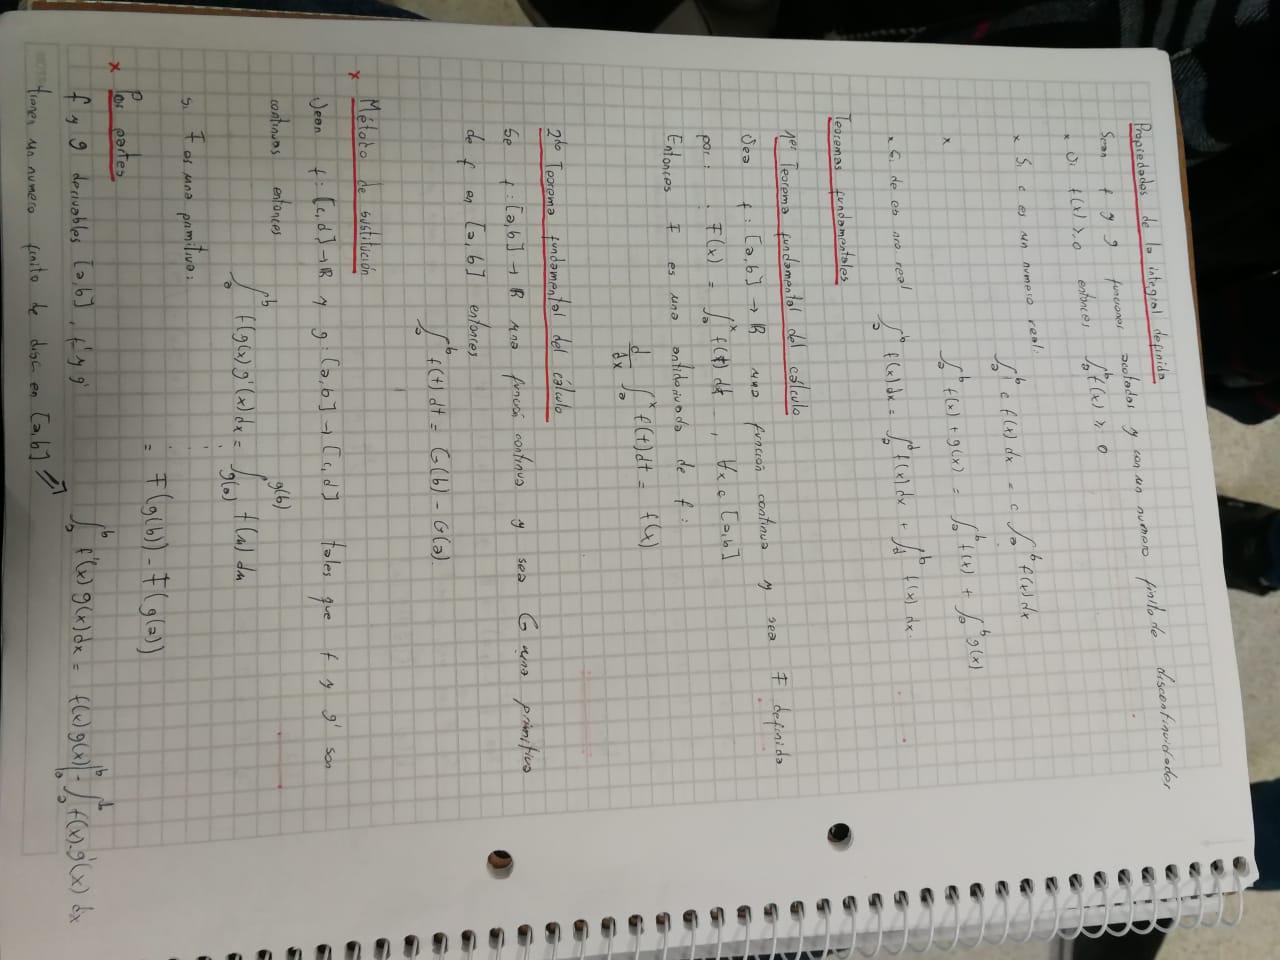 Propiedades de la integral definida
Sean f y g funciones acotadas y con un numero finito de discontinuidades
x Si f(x) ≥ 0 entonces ∫_a^b f(x) ≥ 0
x Si c es un numero real:
∫_a^b c f(x) dx = c ∫_a^b f(x) dx
x ∫_a^b f(x) + g(x) = ∫_a^b f(x) + ∫_a^b g(x)
x Si de es nro real ∫_a^b f(x) dx = ∫_a^d f(x) dx + ∫_d^b f(x) dx.
Teoremas fundamentales
1er Teorema fundamental del cálculo
Sea f: [a,b] → R una función continua y sea F definida
por: F(x) = ∫_a^x f(t) dt, ∀x ∈ [a,b]
Entonces F es una antiderivada de f:
d/dx ∫_a^x f(t) dt = f(x)
2do Teorema fundamental del cálculo
Se f: [a,b] → R una función continua y sea G una primitiva
de f en [a,b] entonces
∫_a^b f(t) dt = G(b) - G(a).
x Método de sustitución
Sean f: [c,d] → R y g: [a,b] → [c,d] tales que f y g' son
continuas entonces
∫_a^b f(g(x)) g'(x) dx = ∫_g(a)^g(b) f(u) du
Si F es una primitiva:
= F(g(b)) - F(g(a))
x Por partes
f y g derivables [a,b], f' y g' ∫_a^b f'(x) g(x) dx = f(x) g(x)|_a^b - ∫_a^b f(x) g'(x) dx
tienen un numero finito de disc en [a,b]